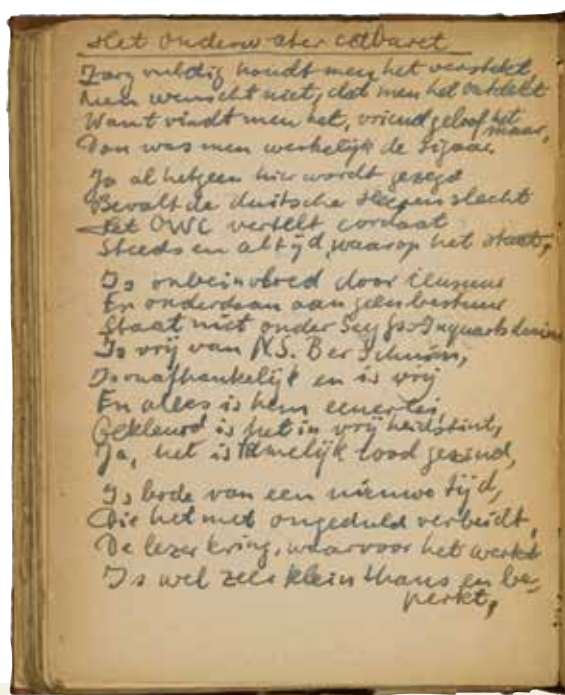 Het Onderwater Cabaret
Zorgvuldig houdt men het versteekt,
Men wenscht niet, dat men het ontdekt
Want vindt men het, vriend geloof het
maar,
Dan was men werkelijk de sigaar.
Ja al hetgeen hier wordt gezegd
Bevalt de duitsche slecht
Het OWC vertelt cordaat
Steeds en altijd, waarop het staat,
Is onbeinvloed door censuur
En onderdaan aan geen bestuur
Staat niet onder Seyss-Inquarts
Is vrij van N.S.
Is onafhankelijk en is vrij
En alles is hem eenerlei,
Gekleurd is het in vrijheidstint,
Ja, het is tamelijk rood gezind,
Is bode van een nieuwe tijd,
Die het met ongeduld verbeidt,
De lezerkring, waarvoor het werkt
Is wel zeer klein thans en be-
perkt,